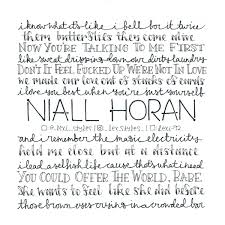 i know what it's like i fell for it twice
them butterflies they come alive
NOW YOU'RE TALKING TO ME FIRST
like sweat dripping down our dirty laundry
DON'T IT FEEL FUCKED UP WE'RE NOT IN LOVE
we made our love out of stardust cards
i love you best when you're just yourself
NIALL HORAN
and i remember the magic electricity
hold me close but at a distance
i lead a selfish life cause that's what i need
YOU COULD OFFER THE WORLD, BABE
She wants to feel like she did before
those brown eyes crying in a crowded bar